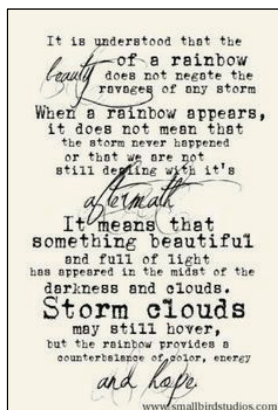 It is understood that the
beauty of a rainbow
does not negate the
ravages of any storm
When a rainbow appears,
it does not mean that
the storm never happened
or that we are not
still dealing with it's
aftermath
It means that
something beautiful
and full of light
has appeared in the midst of the
darkness and clouds.
Storm clouds
may still hover,
but the rainbow provides a
counterbalance of color, energy
and hope
www.smallbirdstudios.com